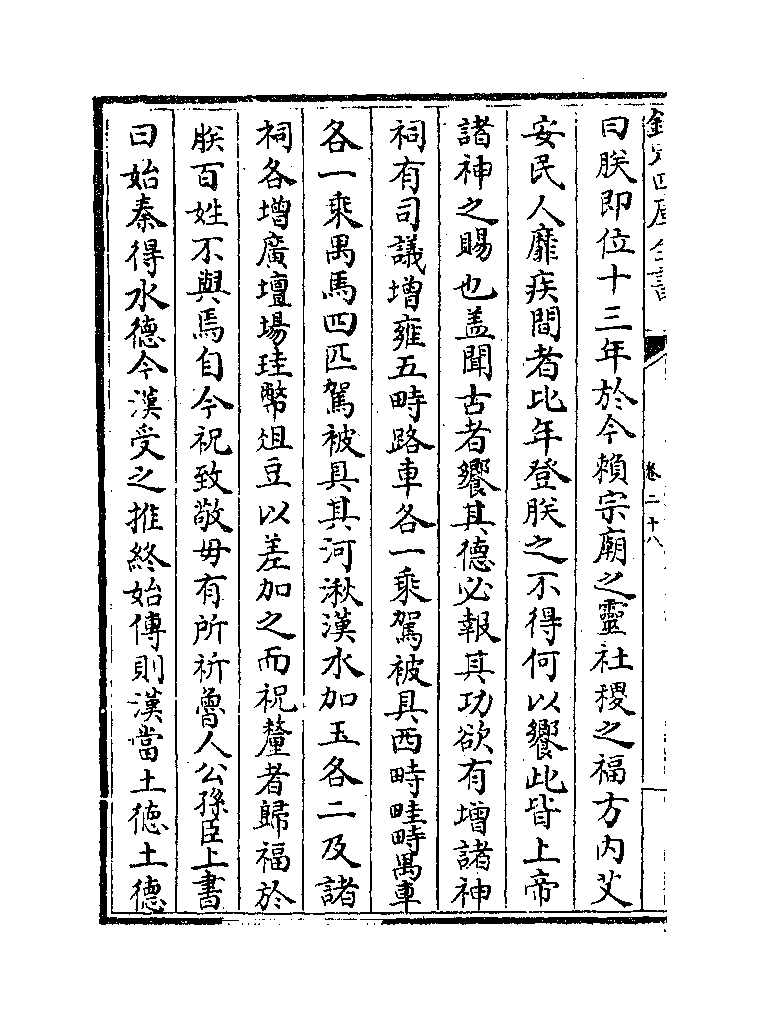 欽定四庫全書
卷二十八
曰朕即位十三年於今賴宗廟之靈社稷之福方内艾
安民人靡疾間者比年登朕之不得何以饗此皆上帝
諸神之賜也盖聞古者饗其德必報其功欲有增諸神
祠有司議增雍五畤路車各一乘駕被具西畤畦畤禺車
各一乘禺馬四匹駕被具其河湫漢水加玉各二及諸
祠各增廣壇場珪幣俎豆以差加之而祝釐者歸福於
朕百姓不與焉自今祝致敬毋有所祈魯人公孫臣上書
曰始秦得水德今漢受之推終始傳則漢當土德土德